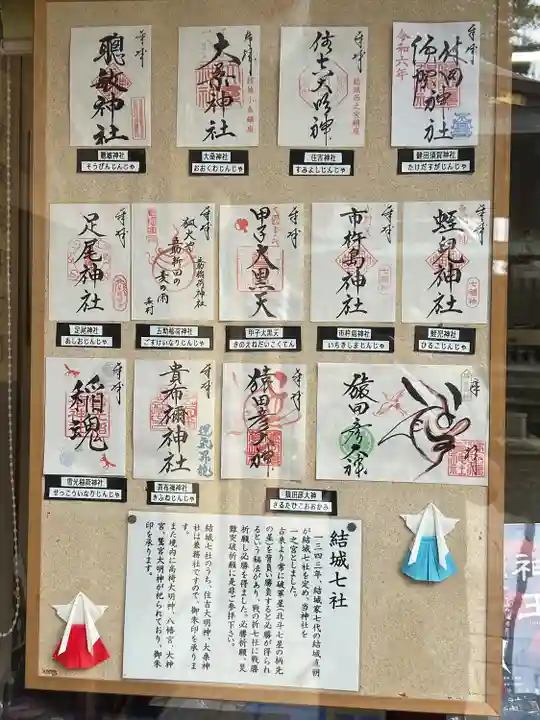 奉拝
聰敏神社
聰敏神社
そうびんじんじゃ
奉拝
大桑神社
大桑神社
おおくわじんじゃ
奉拝
住吉大明神
住吉神社
すみよしじんじゃ
奉拝
令和六年
健田須賀神社
たけだすがじんじゃ
奉拝
足尾神社
足尾神社
あしおじんじゃ
五助稲荷神社
ごすけいなりじんじゃ
奉拝
甲子大黒天
甲子大黒天
きのえねだいこくてん
奉拝
市杵島神社
市杵島神社
いちきしまじんじゃ
奉拝
蛭兒神社
蛭児神社
ひるこじんじゃ
奉拝
稲魂
雪光稲荷神社
せっこういなりじんじゃ
奉拝
貴布禰神社
運気昇龍
貴布禰神社
きふねじんじゃ
奉拝
猿田彦大神
奉拝
猿田彦大神
猿田彦大神
さるたひこおおかみ
結城七社
一三四三年、結城家七代の結城直朝
が結城七社を定め、当神社を
一之宮としました。
古来より常に破軍星(北斗七星の柄先
の星)を背負い勝負すると必勝が得られ
るという秘法があり、戦の折七社に戦勝
祈願し必勝を得ました。必勝祈願、災
難突破祈願に是非ご参拝下さい。
結城七社のうち、住吉大明神、大桑神
社は兼務社ですので、御朱印を承りま
す。
また境内に高椅大明神、八幡宮、大神
宮、鷲宮大明神が祀られており、御朱
印を承ります。